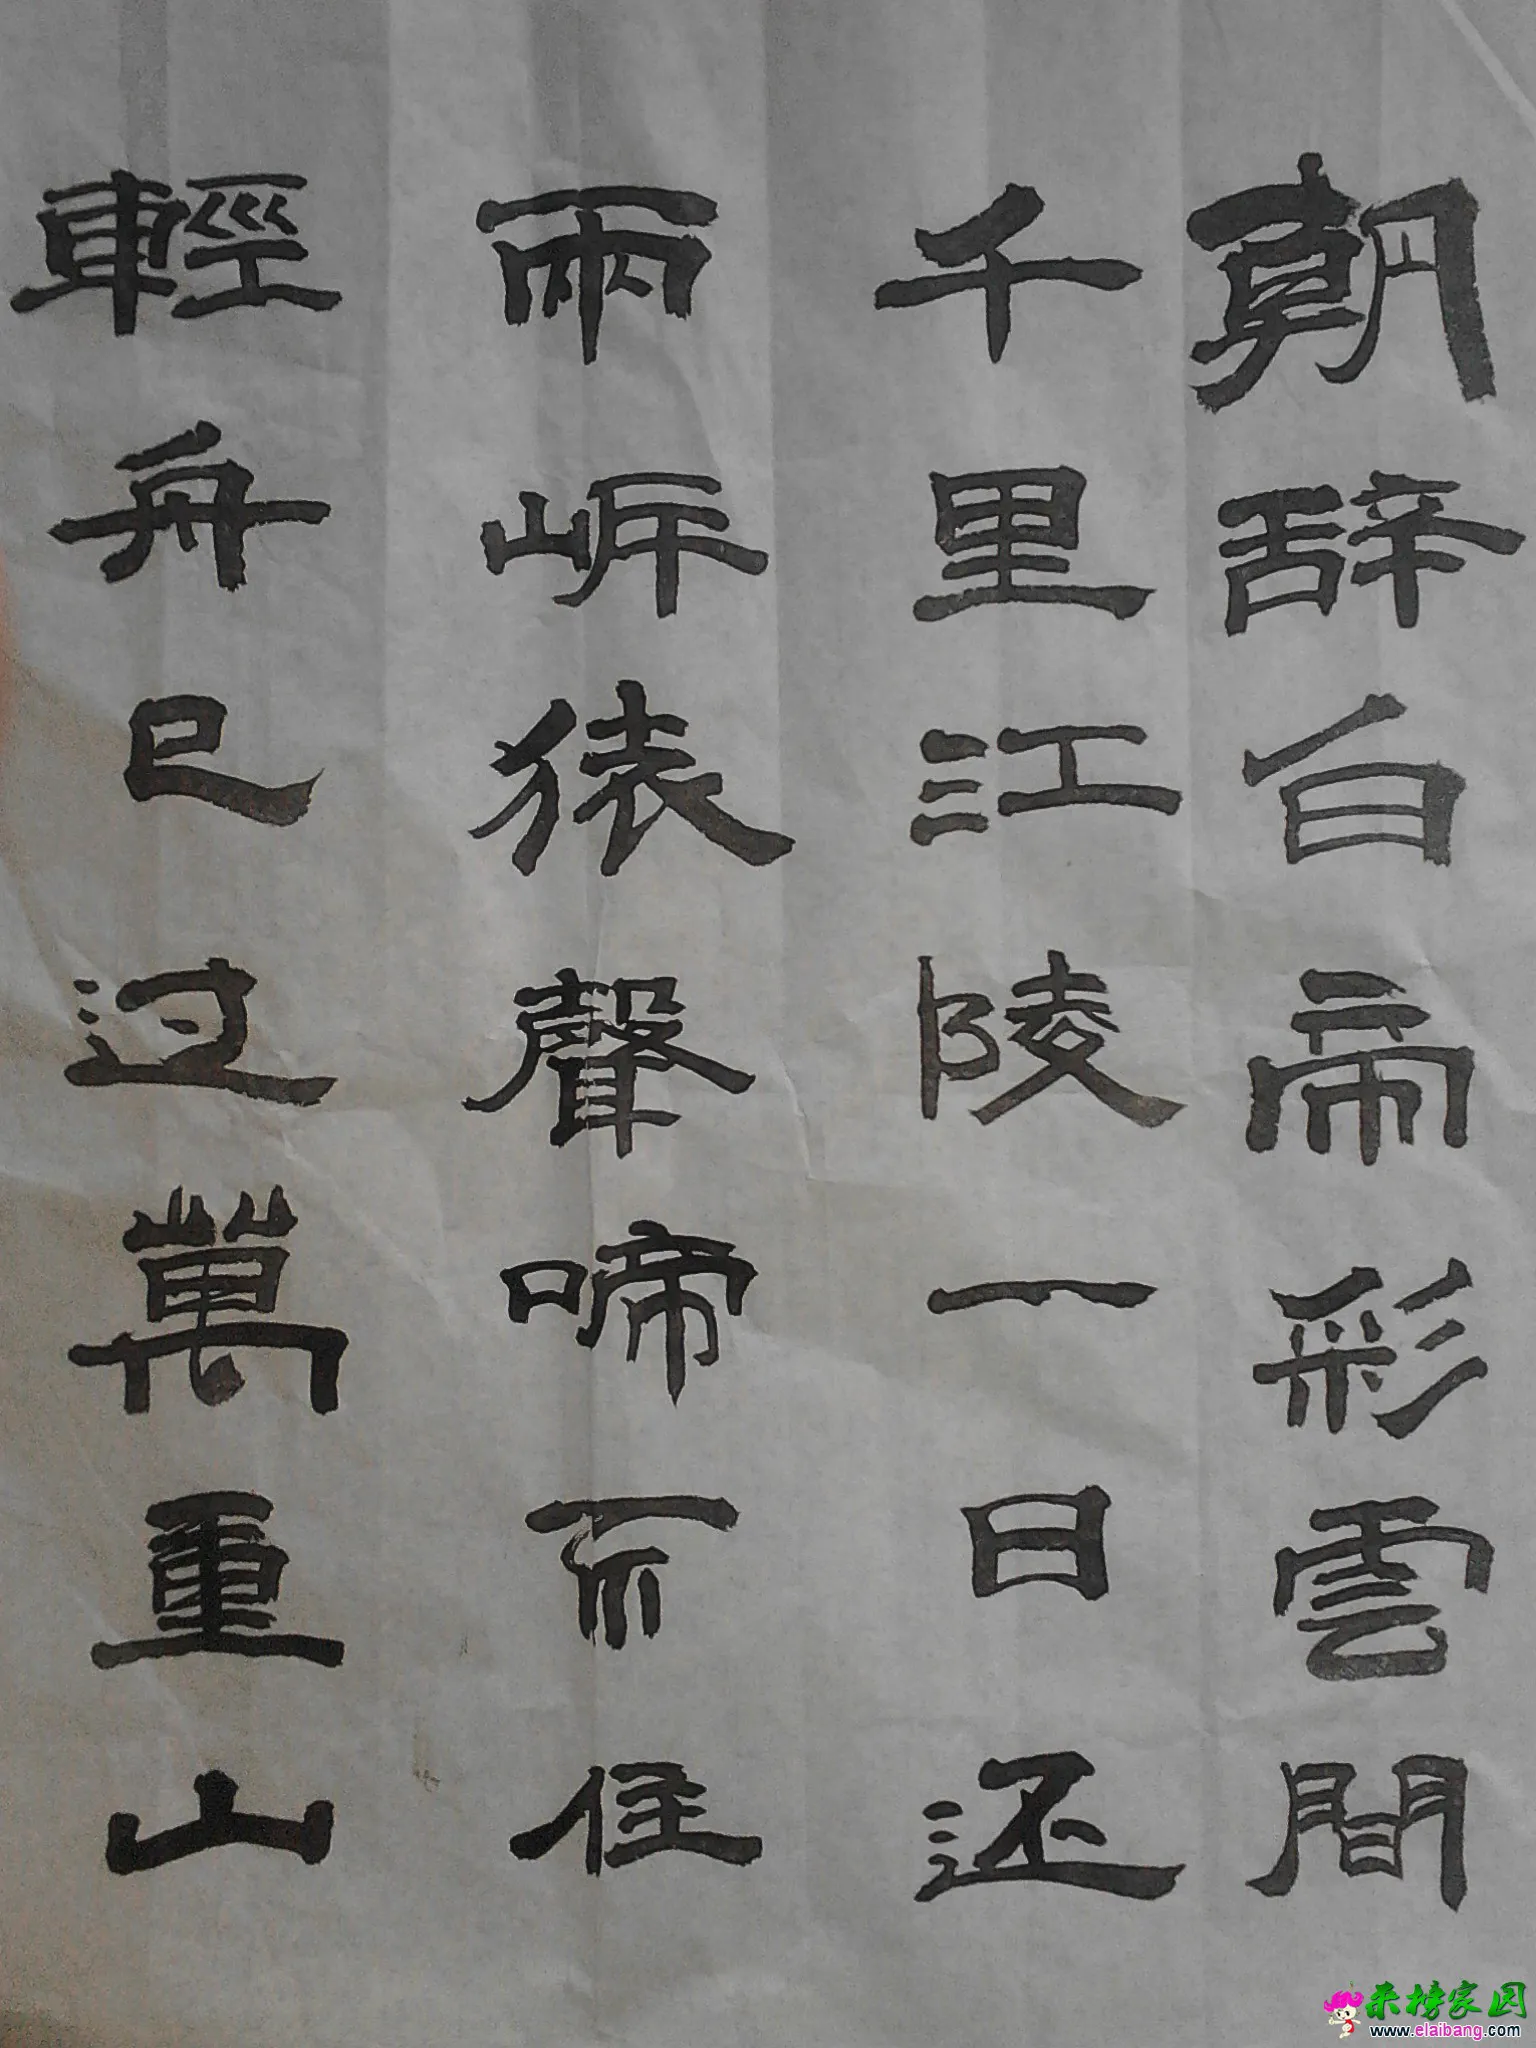 朝辞白帝彩雲間
千里江陵一日还
兩岸猿聲啼不住
輕舟已过萬重山
来榜家园
www.elaibang.com